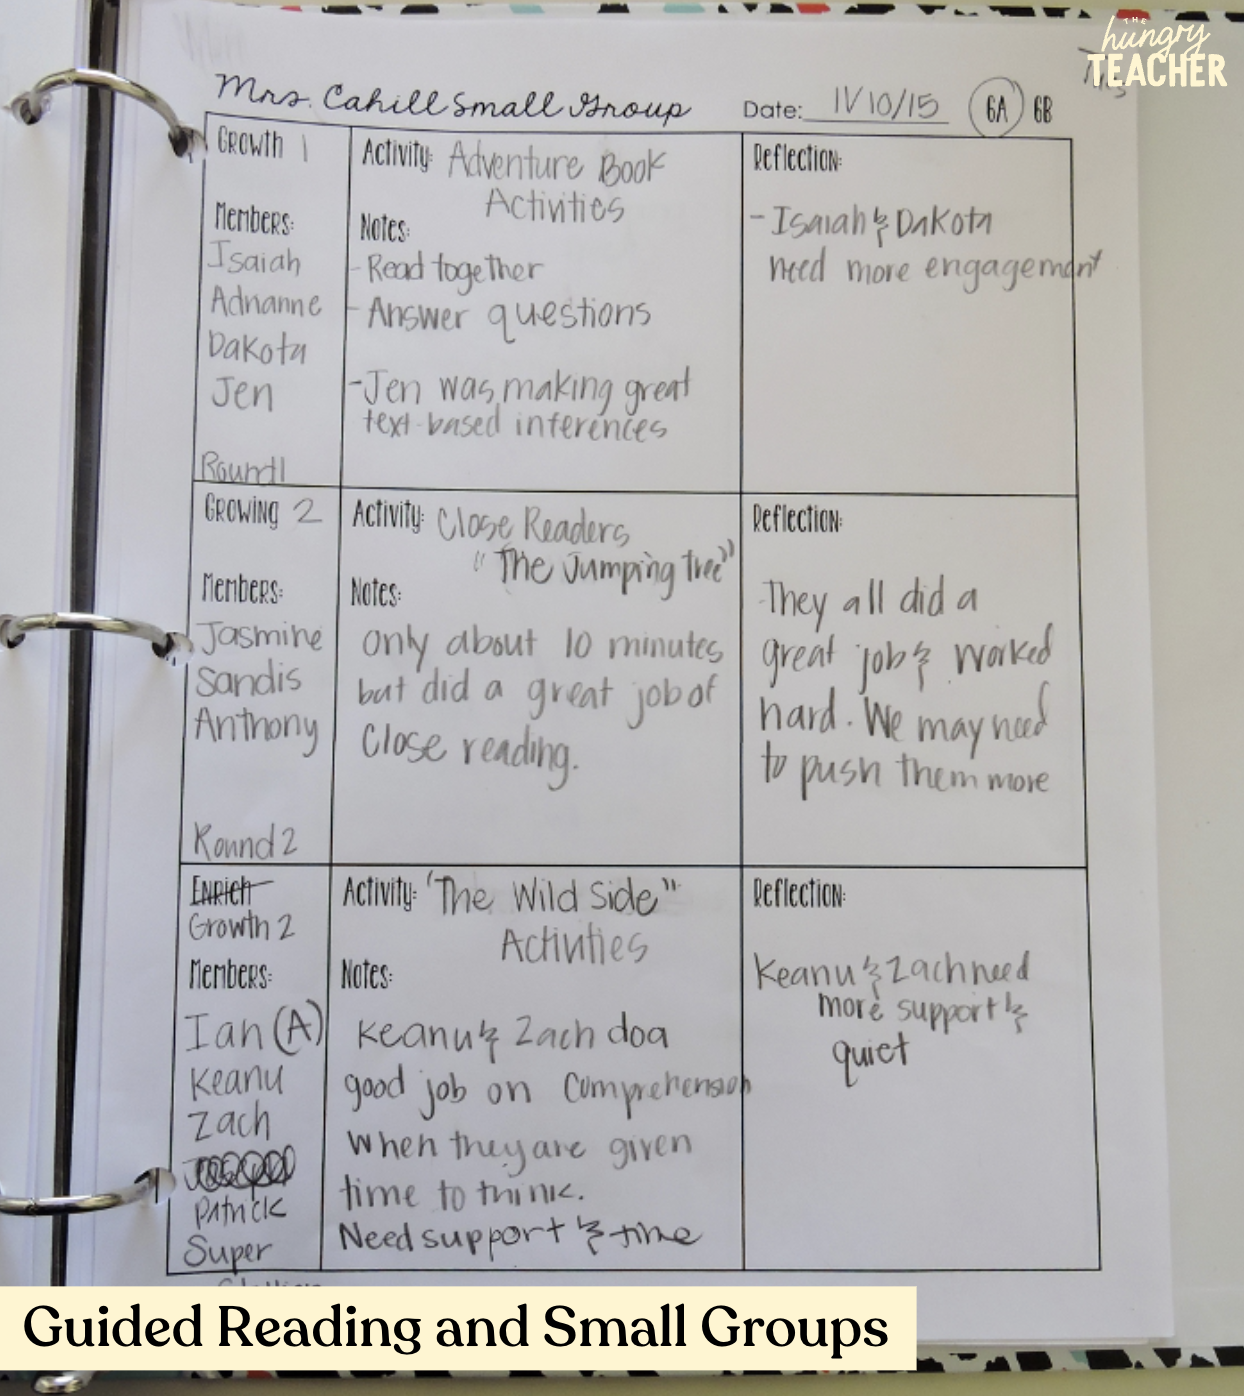 THE
hungry
TEACHER
Mrs. Cahill Small Group Date: 11/10/15 6A 6B
Growth 1
Members:
Isaiah
Adrianne
Dakota
Jen
Round 1
Activity: Adventure Book
Activities
Notes:
- Read together
- Answer questions
- Jen was making great
text-based inferences
Reflection:
- Isaiah & Dakota
need more engagement
Growing 2
Members:
Jasmine
Sandis
Anthony
Round 2
Activity: Close Readers
"The Jumping Tree"
Notes:
Only about 10 minutes
but did a great job of
Close reading.
Reflection:
They all did a
great job & worked
hard. We may need
to push them more
Enrich
Growth 2
Members:
Ian (A)
Keanu
Zach
Patrick
Super
Activity: "The Wild Side"
Activities
Notes:
Keanu & Zach do a
good job on Comprehension
When they are given
time to think.
Need support & time
Reflection:
Keanu & Zach need
more support &
quiet
Guided Reading and Small Groups